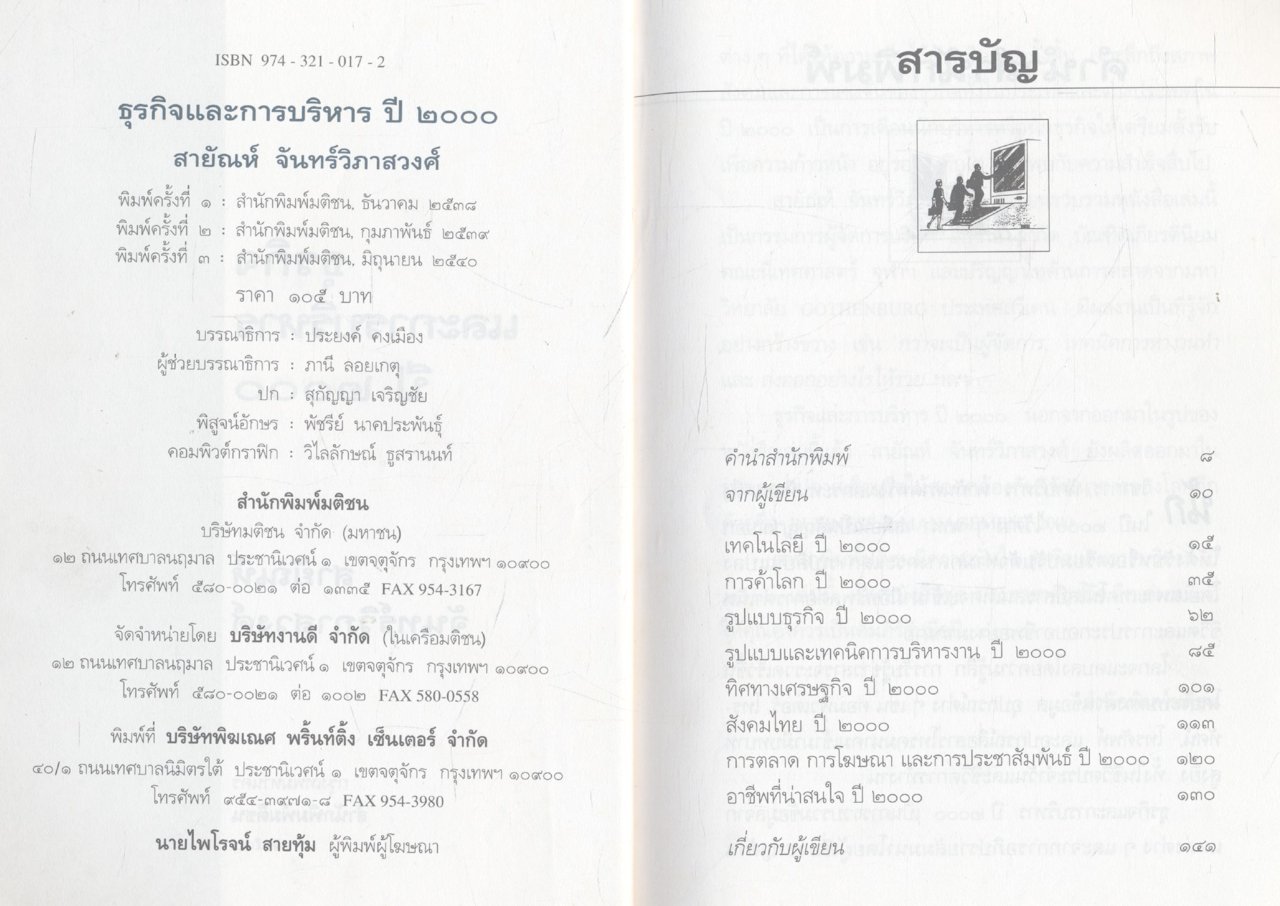 ISBN 974 - 321 - 017 - 2
ธุรกิจและการบริหาร ปี ๒๐๐๐
สายัณห์ จันทร์วิภาสวงศ์
พิมพ์ครั้งที่ ๑ : สำนักพิมพ์มติชน, ธันวาคม ๒๕๓๘
พิมพ์ครั้งที่ ๒ : สำนักพิมพ์มติชน, กุมภาพันธ์ ๒๕๓๙
พิมพ์ครั้งที่ ๓ : สำนักพิมพ์มติชน, มิถุนายน ๒๕๔๐
ราคา ๑๐๕ บาท
บรรณาธิการ : ประยงค์ คงเมือง
ผู้ช่วยบรรณาธิการ : ภานี ลอยเกตุ
ปก : สุกัญญา เจริญชัย
พิสูจน์อักษร : พัชรีย์ นาคประพันธุ์
คอมพิวต์กราฟิก : วิไลลักษณ์ ธูสรานนท์
สำนักพิมพ์มติชน
บริษัทมติชน จำกัด (มหาชน)
๑๒ ถนนเทศบาลนฤมาล ประชานิเวศน์ ๑ เขตจตุจักร กรุงเทพฯ ๑๐๙๐๐
โทรศัพท์ ๕๘๐-๐๐๒๑ ต่อ ๑๓๓๕ FAX 954-3167
จัดจำหน่ายโดย บริษัทงานดี จำกัด (ในเครือมติชน)
๑๒ ถนนเทศบาลนฤมาล ประชานิเวศน์ ๑ เขตจตุจักร กรุงเทพฯ ๑๐๙๐๐
โทรศัพท์ ๕๘๐-๐๐๒๑ ต่อ ๑๐๐๒ FAX 580-0558
พิมพ์ที่ บริษัทพิฆเณศ พริ้นท์ติ้ง เซ็นเตอร์ จำกัด
๔๐/๑ ถนนเทศบาลนิมิตรใต้ ประชานิเวศน์ ๑ เขตจตุจักร กรุงเทพฯ ๑๐๙๐๐
โทรศัพท์ ๙๕๔-๓๙๗๑-๘ FAX 954-3980
นายไพโรจน์ สายทุ้ม ผู้พิมพ์ผู้โฆษณา
สารบัญ
คำนำสำนักพิมพ์ ๘
จากผู้เขียน ๑๐
เทคโนโลยี ปี ๒๐๐๐ ๑๕
การค้าโลก ปี ๒๐๐๐ ๓๕
รูปแบบธุรกิจ ปี ๒๐๐๐ ๖๒
รูปแบบและเทคนิคการบริหารงาน ปี ๒๐๐๐ ๘๕
ทิศทางเศรษฐกิจ ปี ๒๐๐๐ ๑๐๑
สังคมไทย ปี ๒๐๐๐ ๑๑๓
การตลาด การโฆษณา และการประชาสัมพันธ์ ปี ๒๐๐๐ ๑๒๐
อาชีพที่น่าสนใจ ปี ๒๐๐๐ ๑๓๐
เกี่ยวกับผู้เขียน ๑๔๑